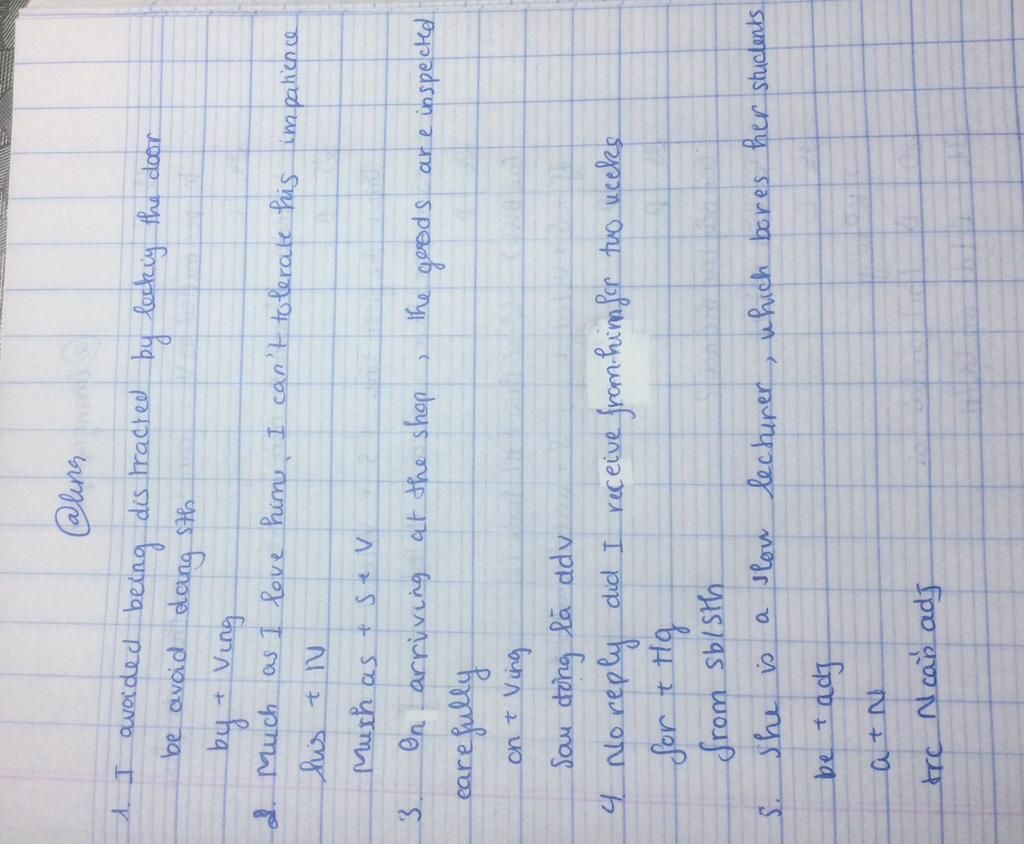 @lung
1. I avoided being distracted by lockiy the door
be avoid doing sth
by + Ving
2. Much as I love him, I can't tolerate his impatience
his + N
Mush as + S + V
3. On arriving at the shop, the goods are inspected
carefully
on + Ving
Sau động là adv
4. No reply did I receive from him for two weeks
for + tg
from sb/sth
5. She is a slow lecturer, which bores her students
be + adj
a + N
trc N cần adj